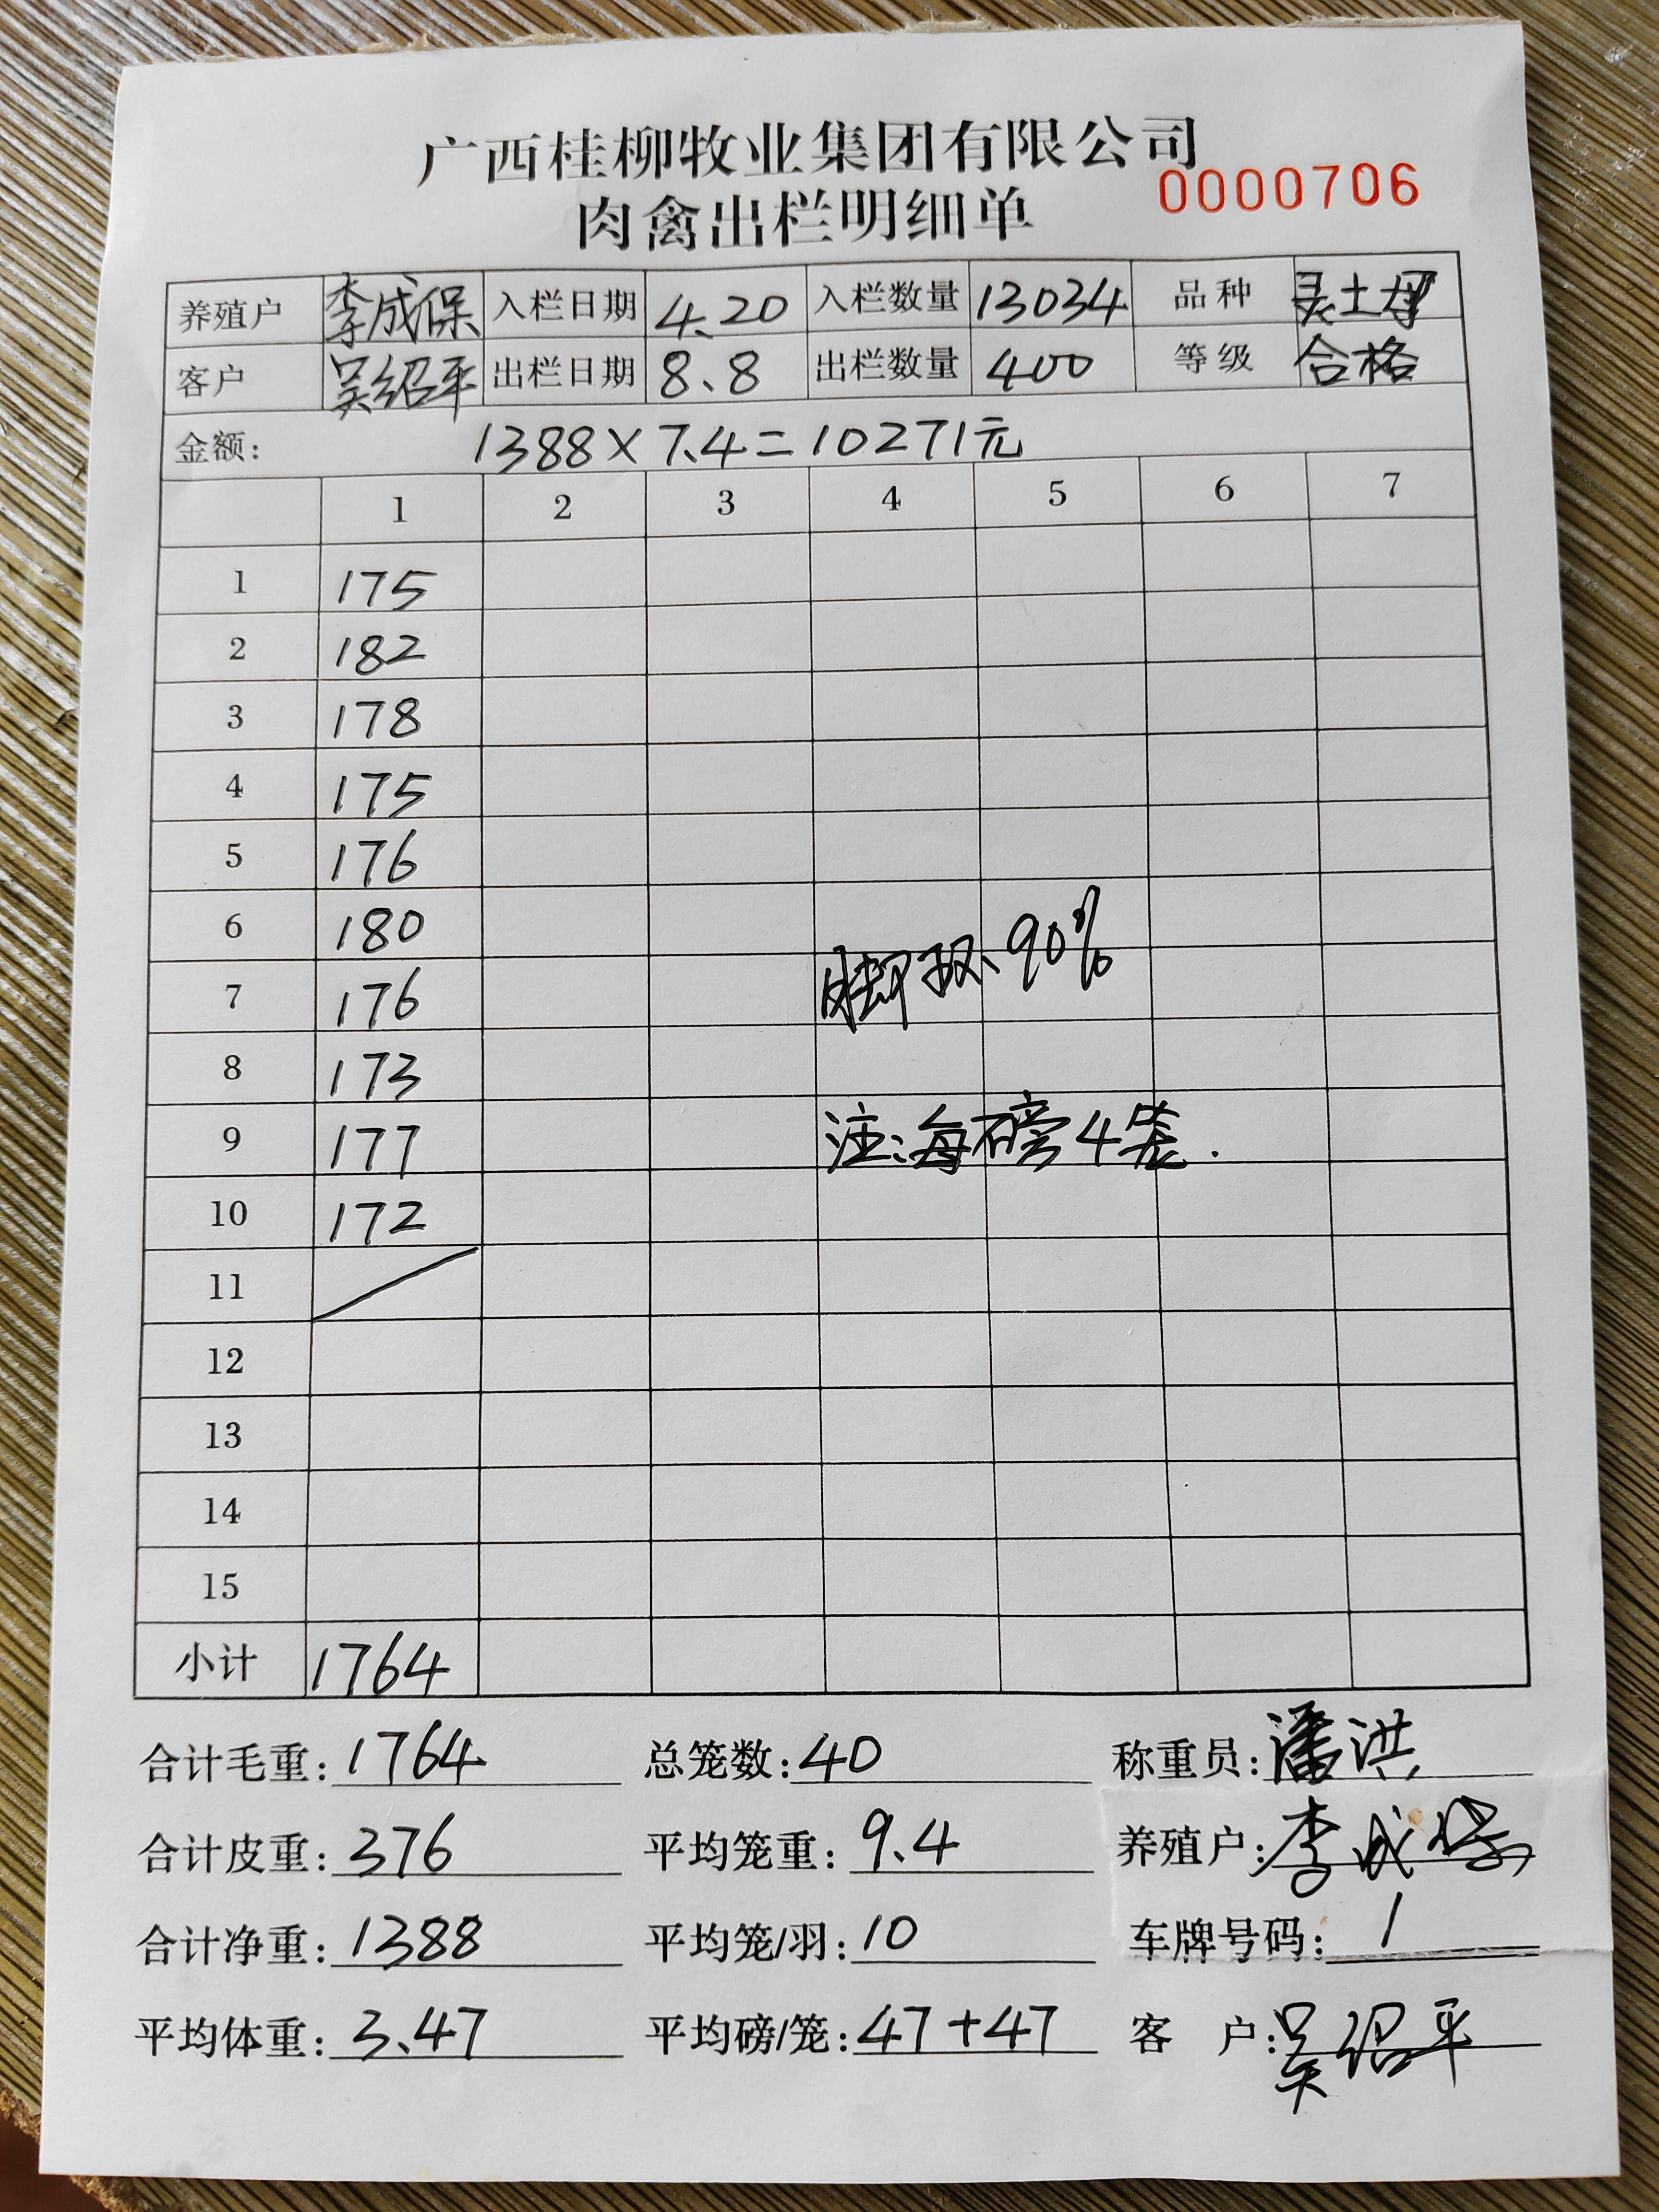 广西桂柳牧业集团有限公司
0000706
肉禽出栏明细单
养殖户 李成保 入栏日期 4.20 入栏数量 13034 品种 灵土母
客户 吴绍平 出栏日期 8.8 出栏数量 400 等级 合格
金额: 1388×7.4=10271元
1 2 3 4 5 6 7
1 175
2 182
3 178
4 175
5 176
6 180
7 176
8 173
9 177
10 172
11
12
13
14
15
脚环、90%
注:每磅4笼.
小计 1764
合计毛重:1764 总笼数:40 称重员:潘洪
合计皮重:376 平均笼重:9.4 养殖户:李成保
合计净重:1388 平均笼/羽:10 车牌号码:1
平均体重:3.47 平均磅/笼:47+47 客户:吴绍平